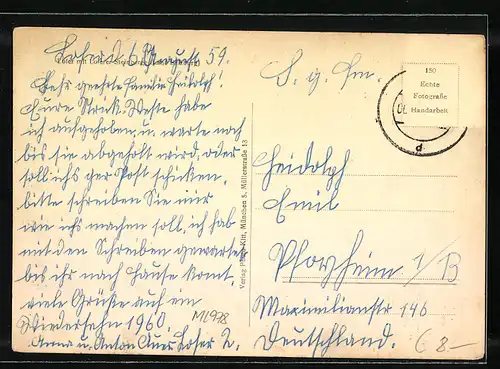 Lofer, d. 6 August 59.
Sehr geehrte Familie Heidolph!
Eure Strick-Weste habe
ich aufgehoben, u. warte noch
bis sie abgeholt wird, oder
soll ichs per Post schicken,
bitte schreiben Sie mir
wie ichs machen soll, ich hab
mit den Schreiben gewartet
bis ihr nach Hause komt,
viele Grüße auf ein
Wiedersehn 1960
Anna u. Anton Lofer 2.
ML978
Verlag Photo-Kitt, München 5, Müllerstraße 13
150
Echte
Fotografie
Handarbeit
d
Heidolph
Emil
Pforzheim 1/B
Maximilianstr 146
Deutschland.
€ 8-